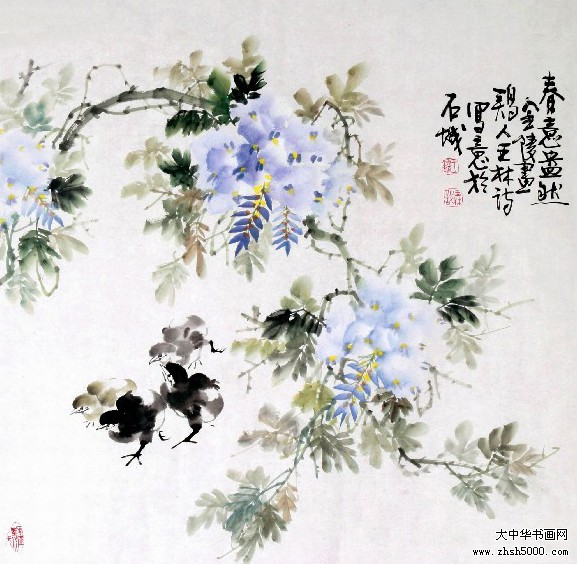 春意盎然
金陵畫
鷄人王林诗
寫意於
石城
大中华书画网
www.zhsh5000.com